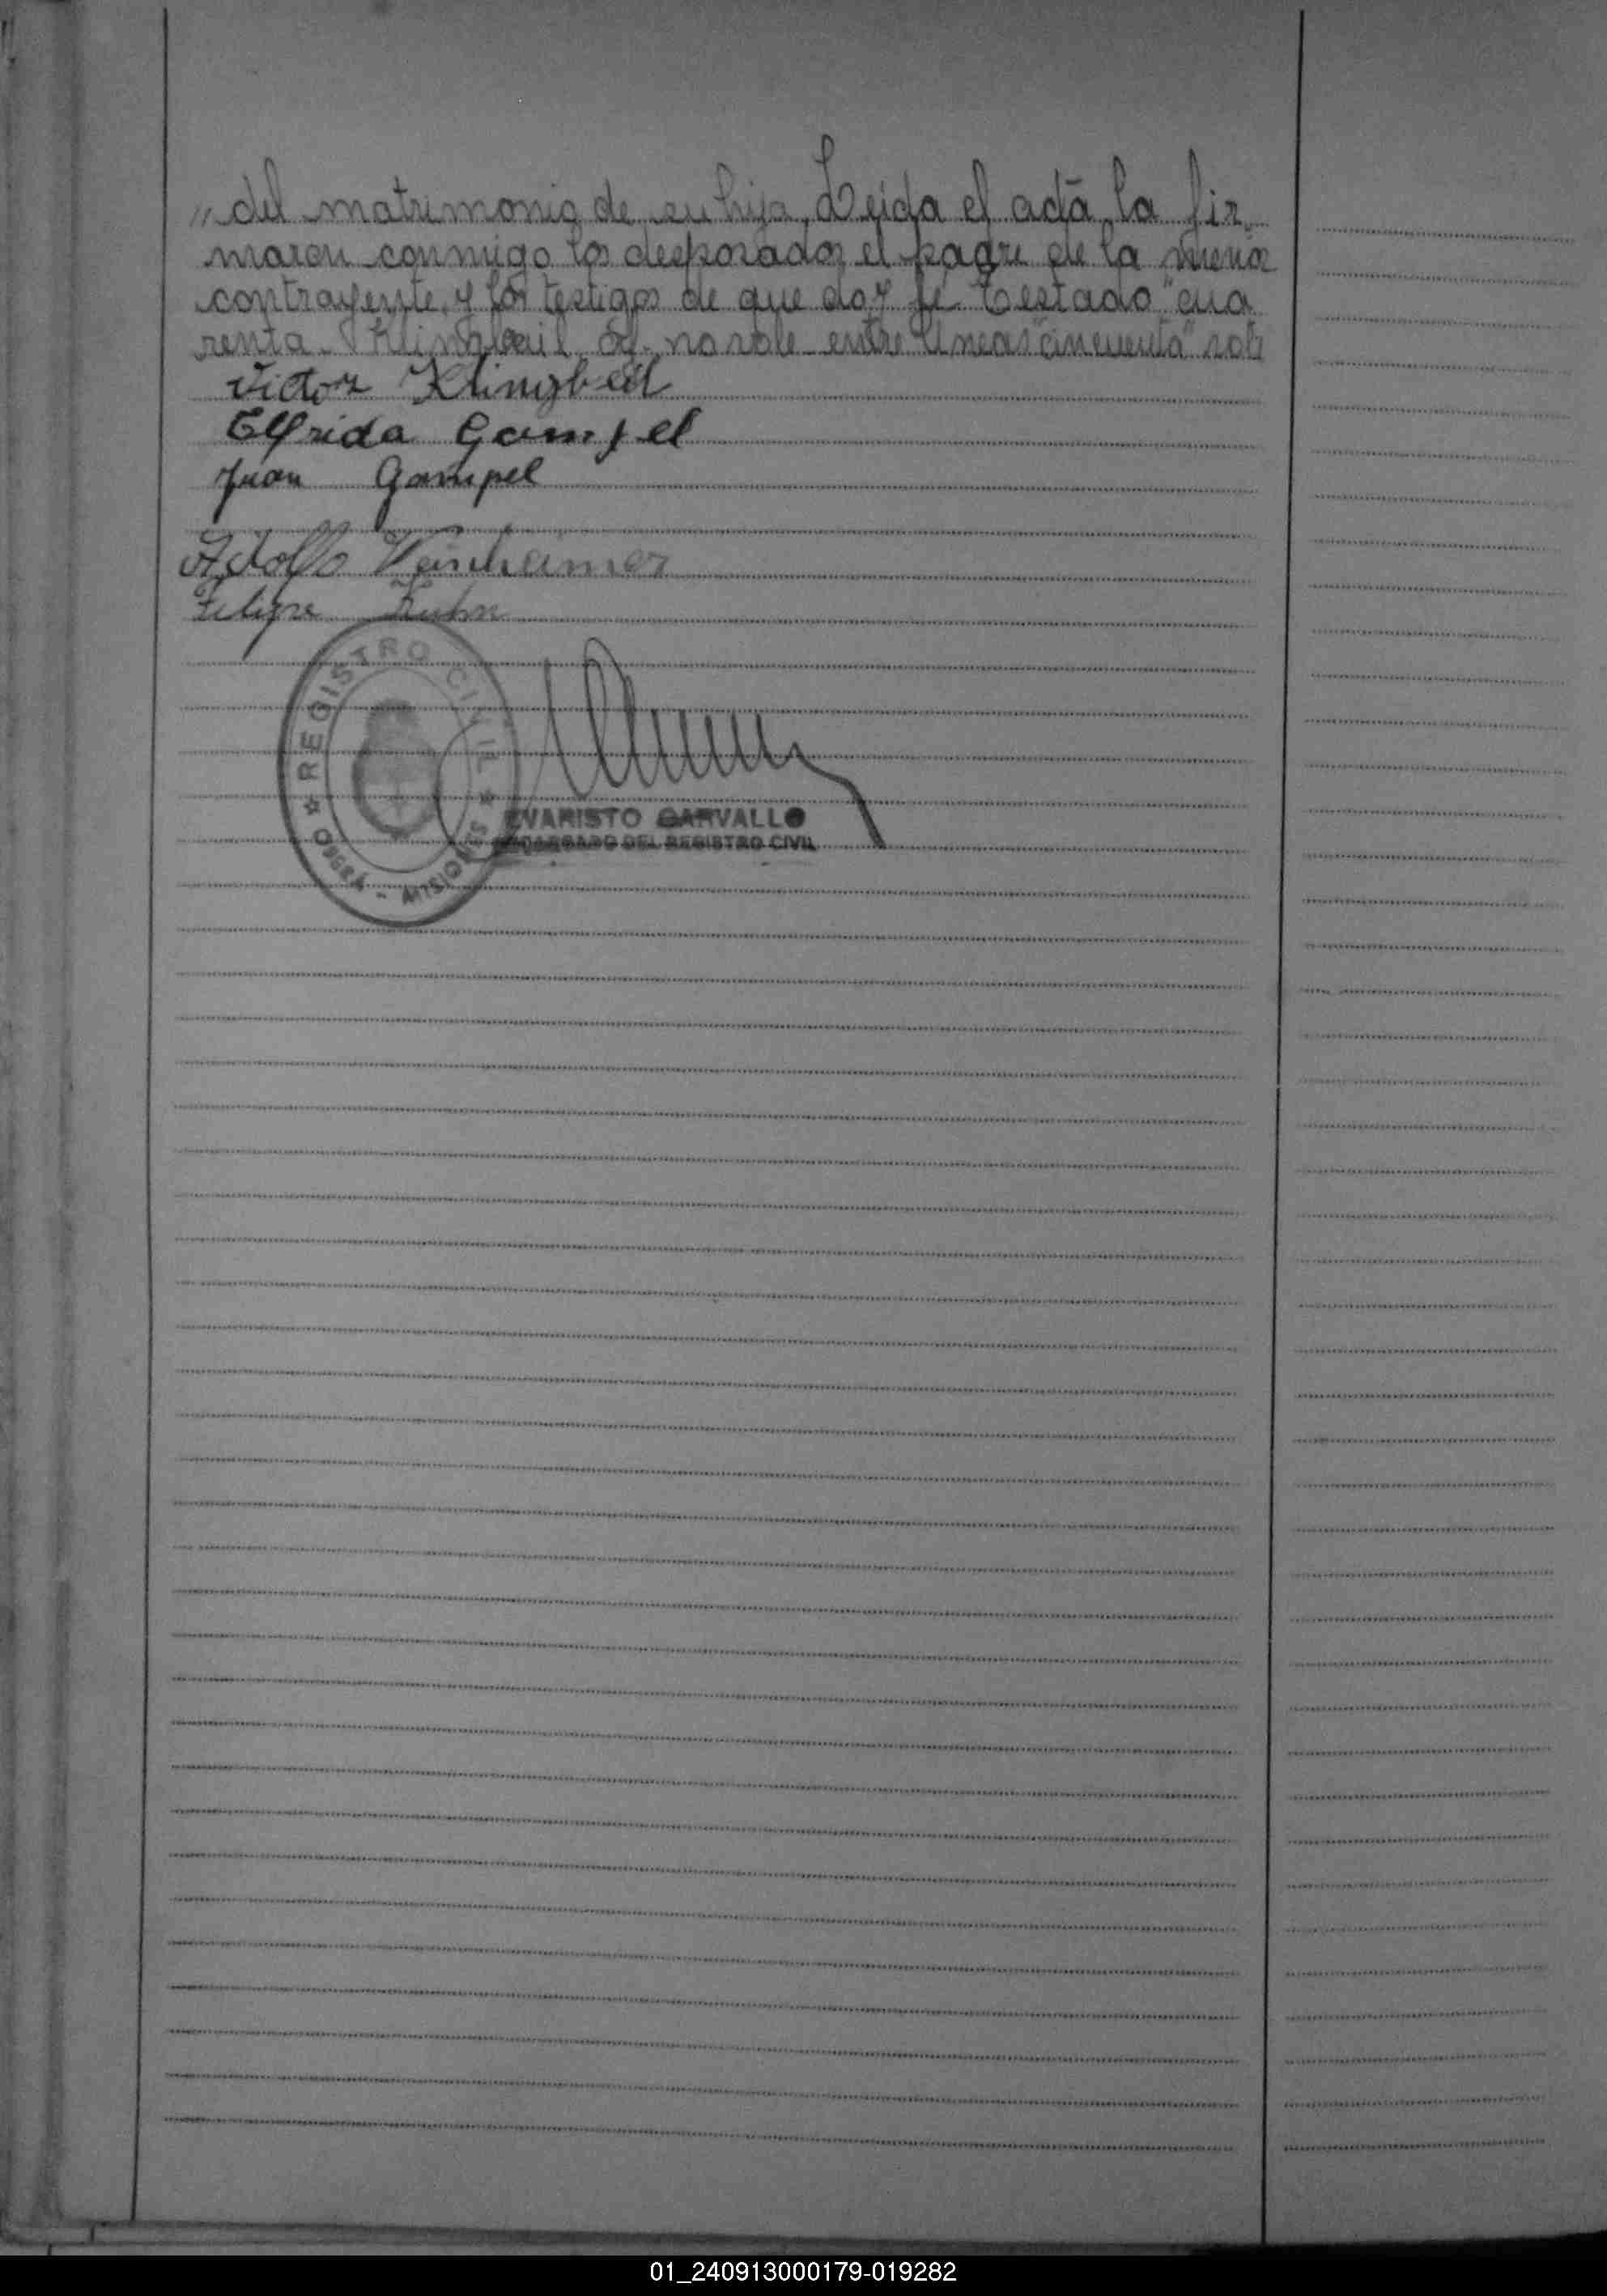 „ del matrimonio de su hija, Leida el acta, la fir
maron conmigo los desposados el padre de la menor
contrayente, y los testigos de que doy fé Testado "cua
renta - Klingbeil no vale - entre lineas "cincuenta" vale
Victor Klingbeil
Elfrida Gampel
Juan Gampel
Adolfo
Felipe Kuhn
REGISTRO CIVIL
OBERA - MISIONES
EVARISTO CARVALLO
ENCARGADO DEL REGISTRO CIVIL
01_240913000179-019282